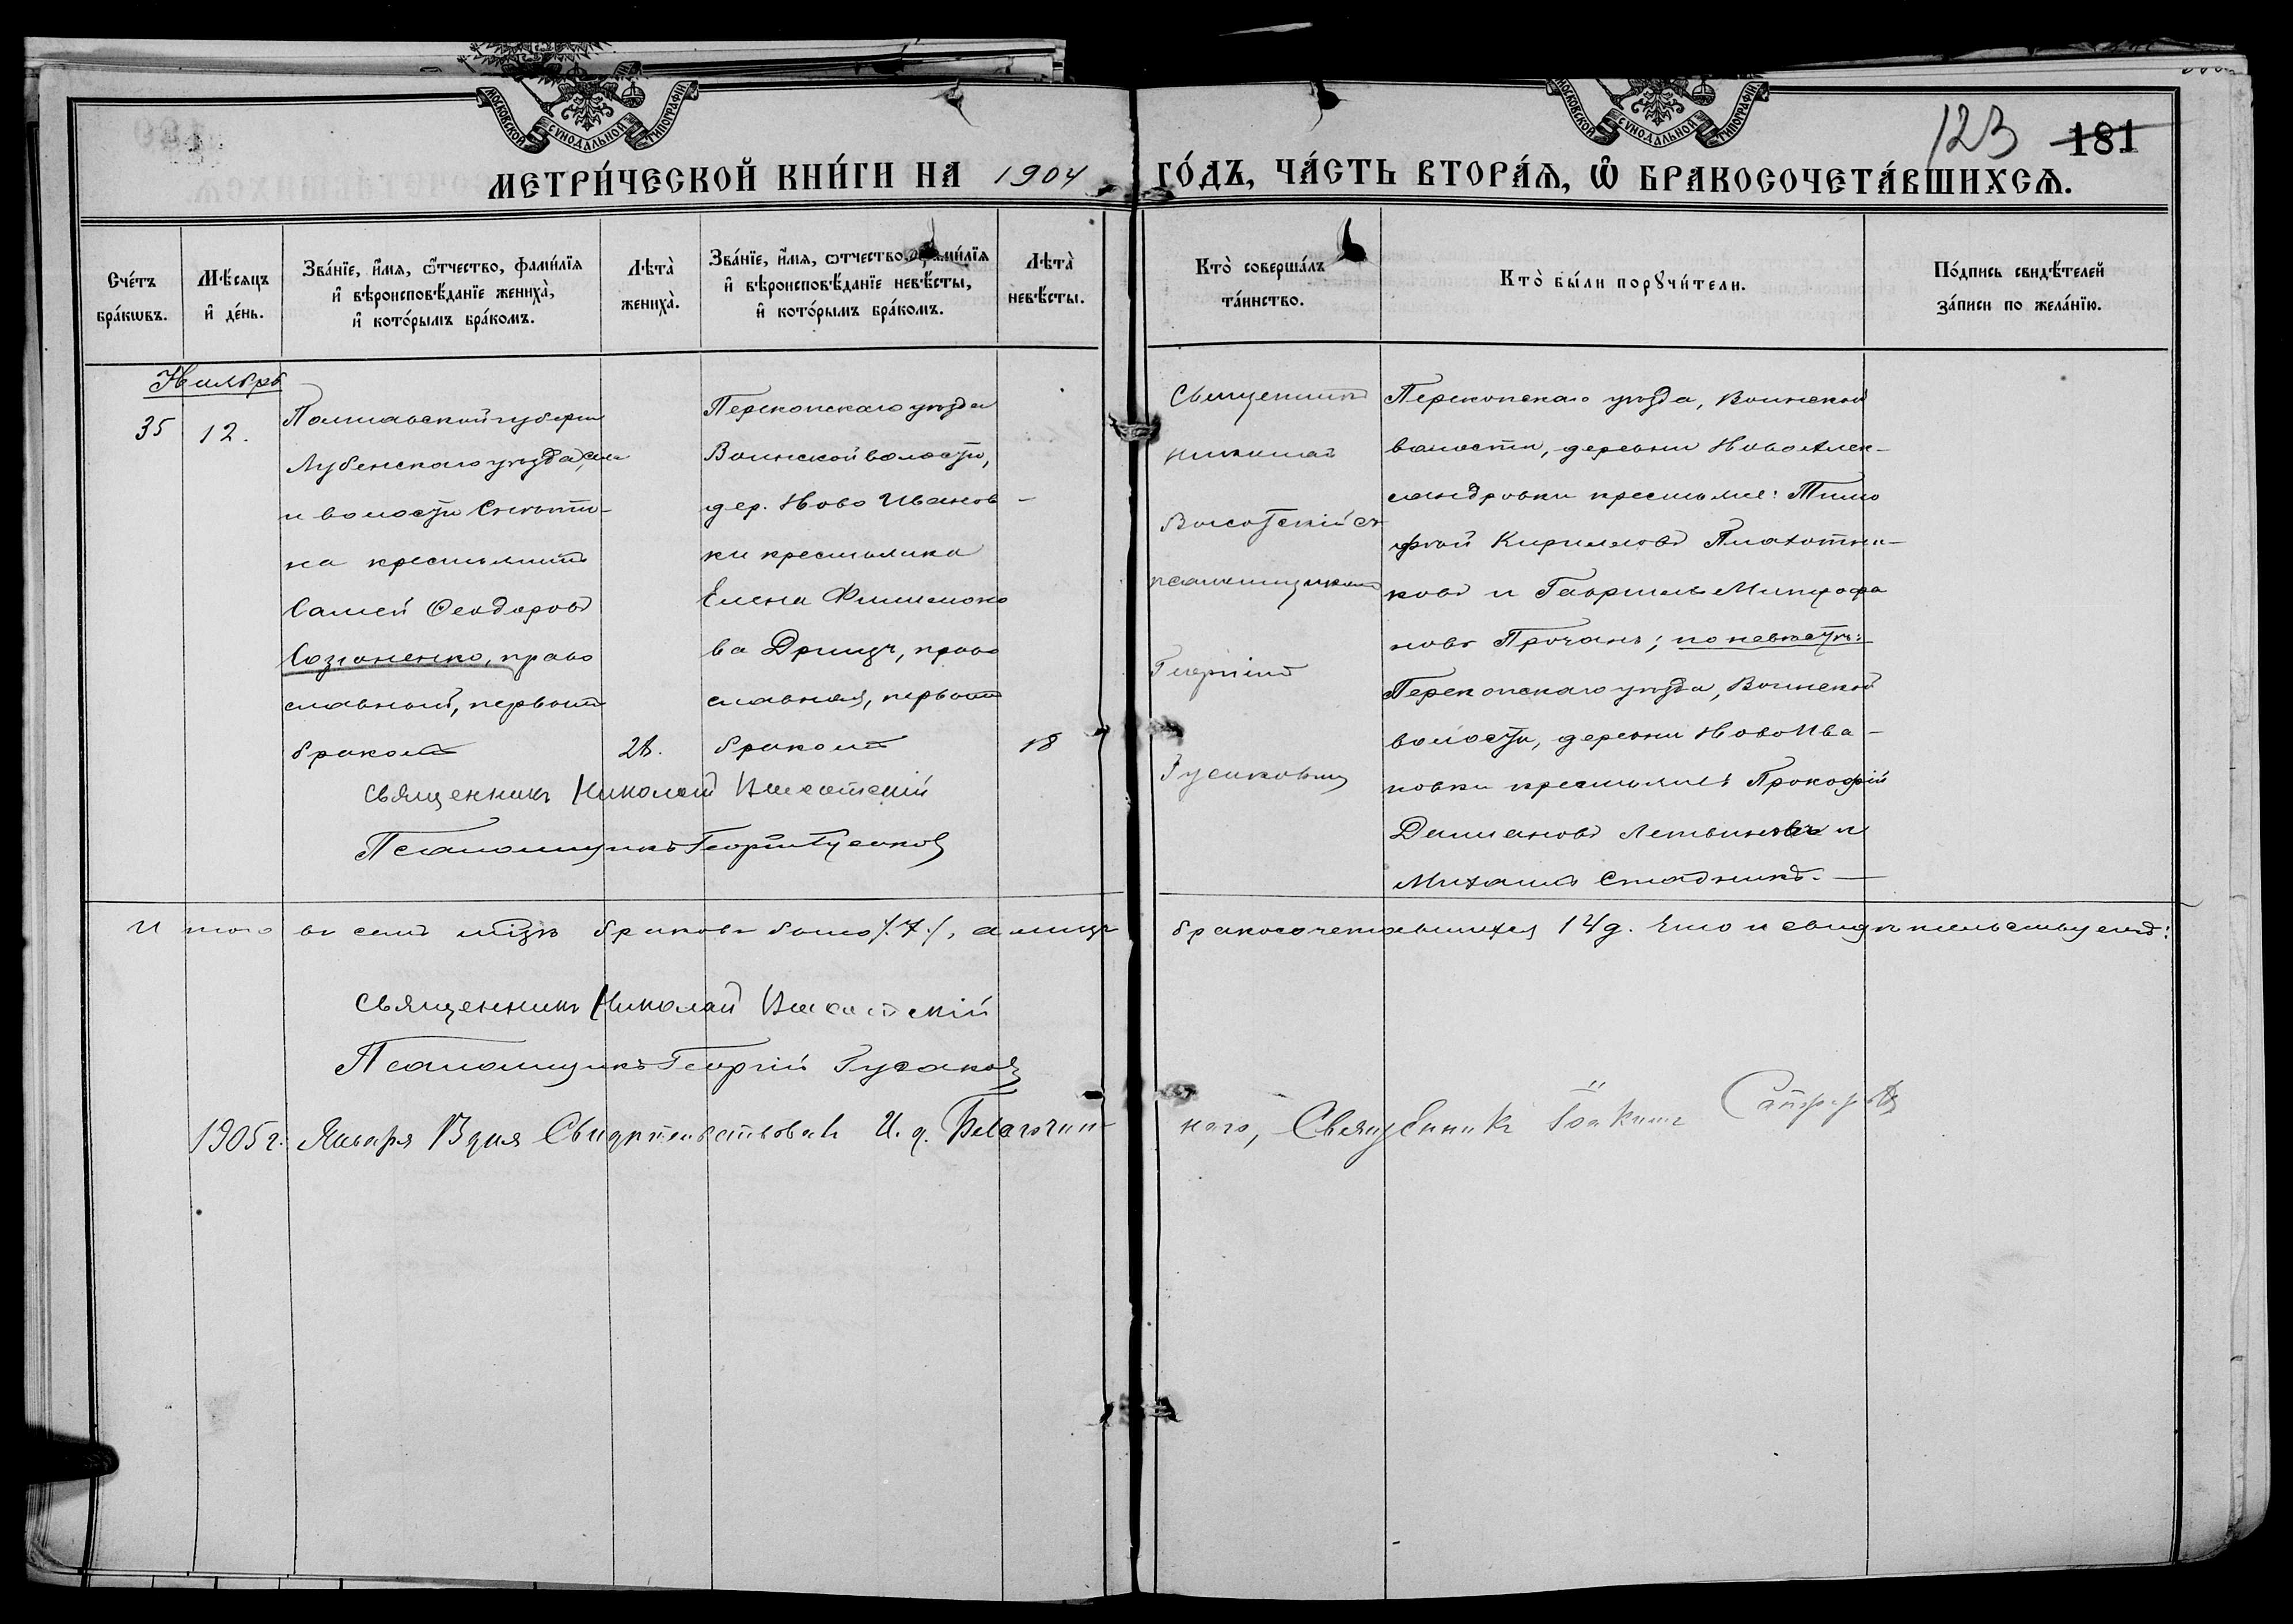 МОСКОВСКОЙ СѴНОДАЛЬНОЙ ТИПОГРАФІИ
МОСКОВСКОЙ СѴНОДАЛЬНОЙ ТИПОГРАФІИ
123 181
МЕТРИ́ЧЕСКОЙ КНИ́ГИ НА 1904 ГО́ДЪ, ЧА́СТЬ ВТОРА́Ѧ, Ѡ҆ БРАКОСОЧЕТА́ВШИХСѦ.
Сче́тъ
бра́кѡвъ.
Мѣ́сяцъ
и҆ де́нь.
Зва́нїе, и҆́мя, ѻ҆́тчество, фами́лїя
и҆ вѣроисповѣ́данїе жениха̀,
и҆ кото́рымъ бра́комъ.
Лѣта̀
жениха̀.
Зва́нїе, и҆́мя, ѻтчество, фами́лїя
и҆ вѣроисповѣ́данїе невѣ́сты,
и҆ кото́рымъ бра́комъ.
Лѣта̀
невѣ́сты.
Кто̀ соверша́лъ
та́инство.
Кто̀ бы́ли порꙋчи́тели.
По́дпись свидѣ́телей
за́писи по жела́нїю.
Ноябрь
35
12.
Полтавской губерніи
Лубенскаго уѣзда, села
и волости Снѣти-
на крестьянинъ
Савей Ѳеодоровъ
Созоненко, право
славный, первымъ
бракомъ
Перекопскаго уѣзда
Воинской волости,
дер. Ново Иванов-
ки крестьянка
Елена Филимоно
ва Дрищъ, право
славная, первымъ
бракомъ
18
Священникъ
Николай
Высотскій съ
псаломщикомъ
Георгіемъ
Гусаковымъ
Перекопскаго уѣзда, Воинской
волости, деревни Ново Алек-
сандровки крестьяне: Тимо
фѣй Кирилловъ Плахотни-
ковъ и Гавріилъ Митрофа
новъ Прочанъ; по невѣстѣ:
Перекопскаго уѣзда, Воинской
волости, деревни Ново Ива-
новки крестьяне Прокофій
Даміановъ Летвиновъ и
Михаилъ Стадникъ. —
Священникъ Николай Высотскій
Псаломщикъ Георгій Гусаковъ
Итого въ семъ мцѣ браковъ было /.7./, а лицъ бракосочетавшихся 14 д. Что и свидѣтельствуемъ:
Священникъ Николай Высотскій
Псаломщикъ Георгій Гусаковъ
1905 г. Января 13 дня Свидѣтельствовалъ И. д. Благочин-
наго, Священникъ Іоакимъ